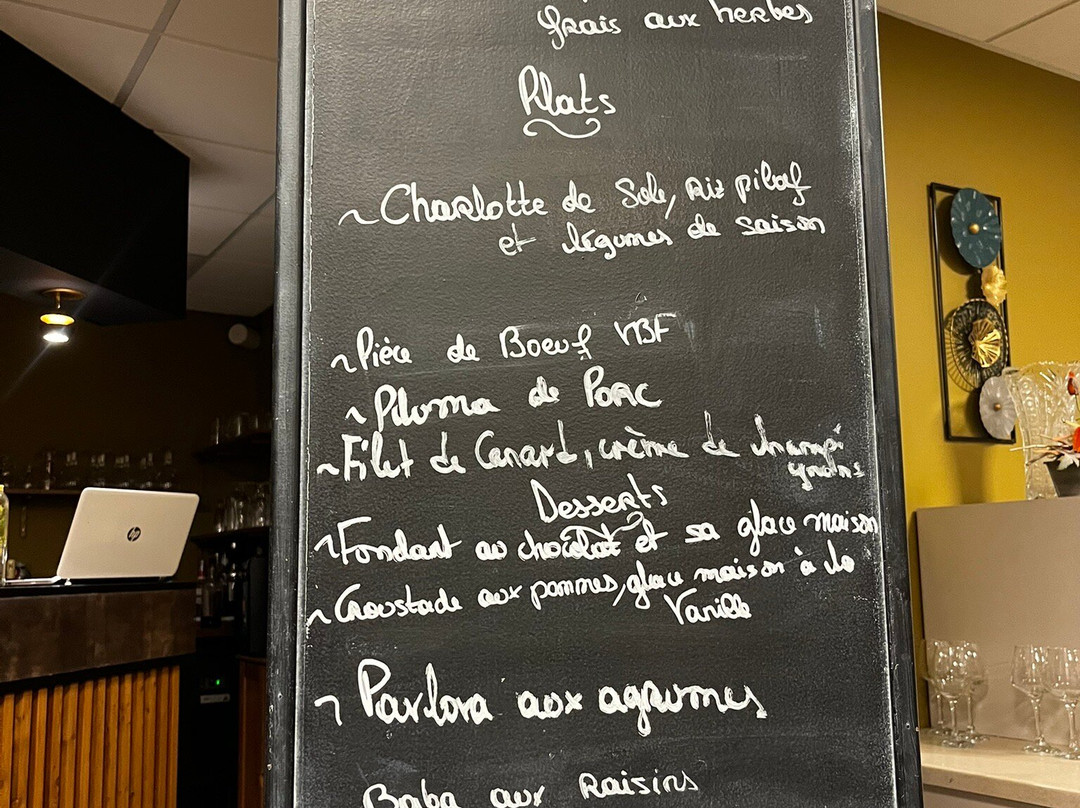 frais aux herbes
Plats
~ Charlotte de Sole, Riz pilaf
et légumes de saison
~ Pièce de Boeuf VBF
~ Pluma de Porc
~ Filet de Canard, crème de champi
gnons
Desserts
~ Fondant au chocolat et sa glace maison
~ Croustade aux pommes, glace maison à la
Vanille
~ Pavlova aux agrumes
Baba aux Raisins
hp